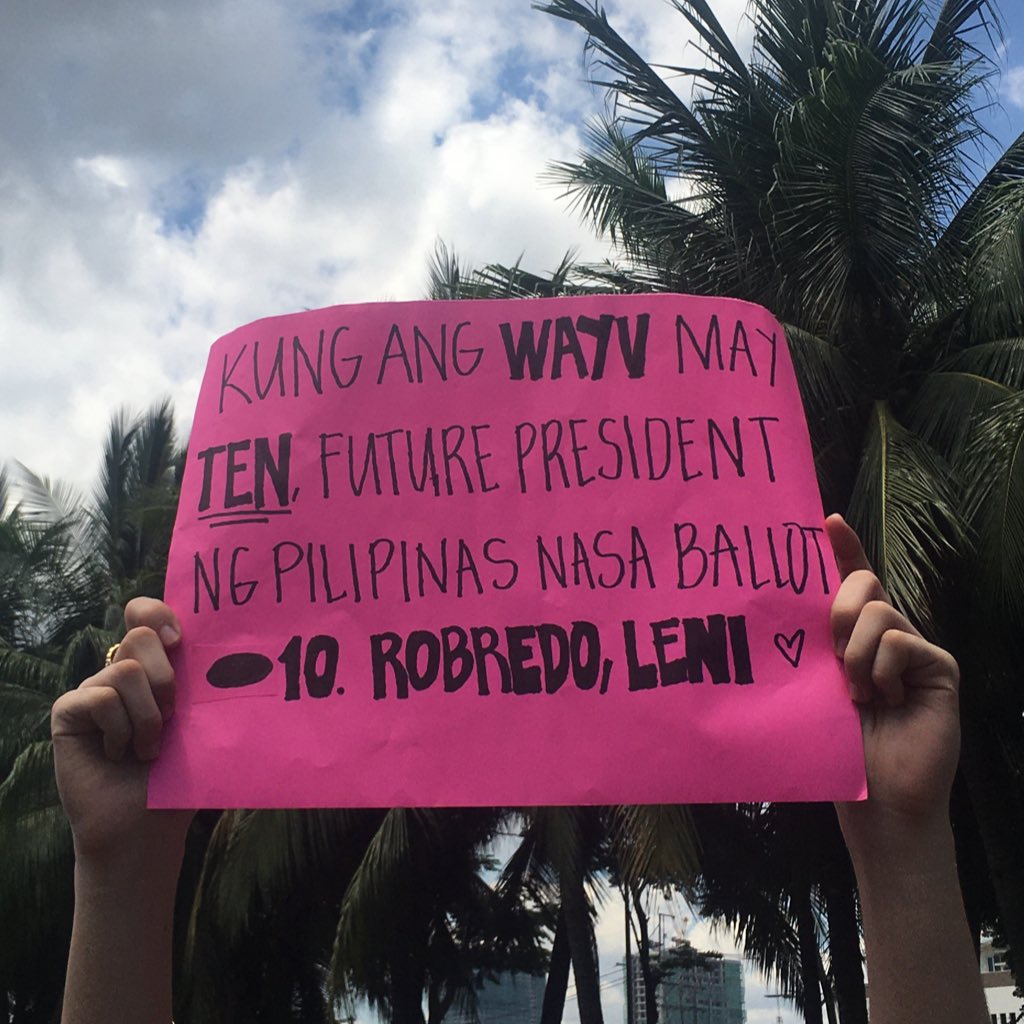 KUNG ANG WAYV MAY
TEN, FUTURE PRESIDENT
NG PILIPINAS NASA BALLOT
10. ROBREDO, LENI ♡